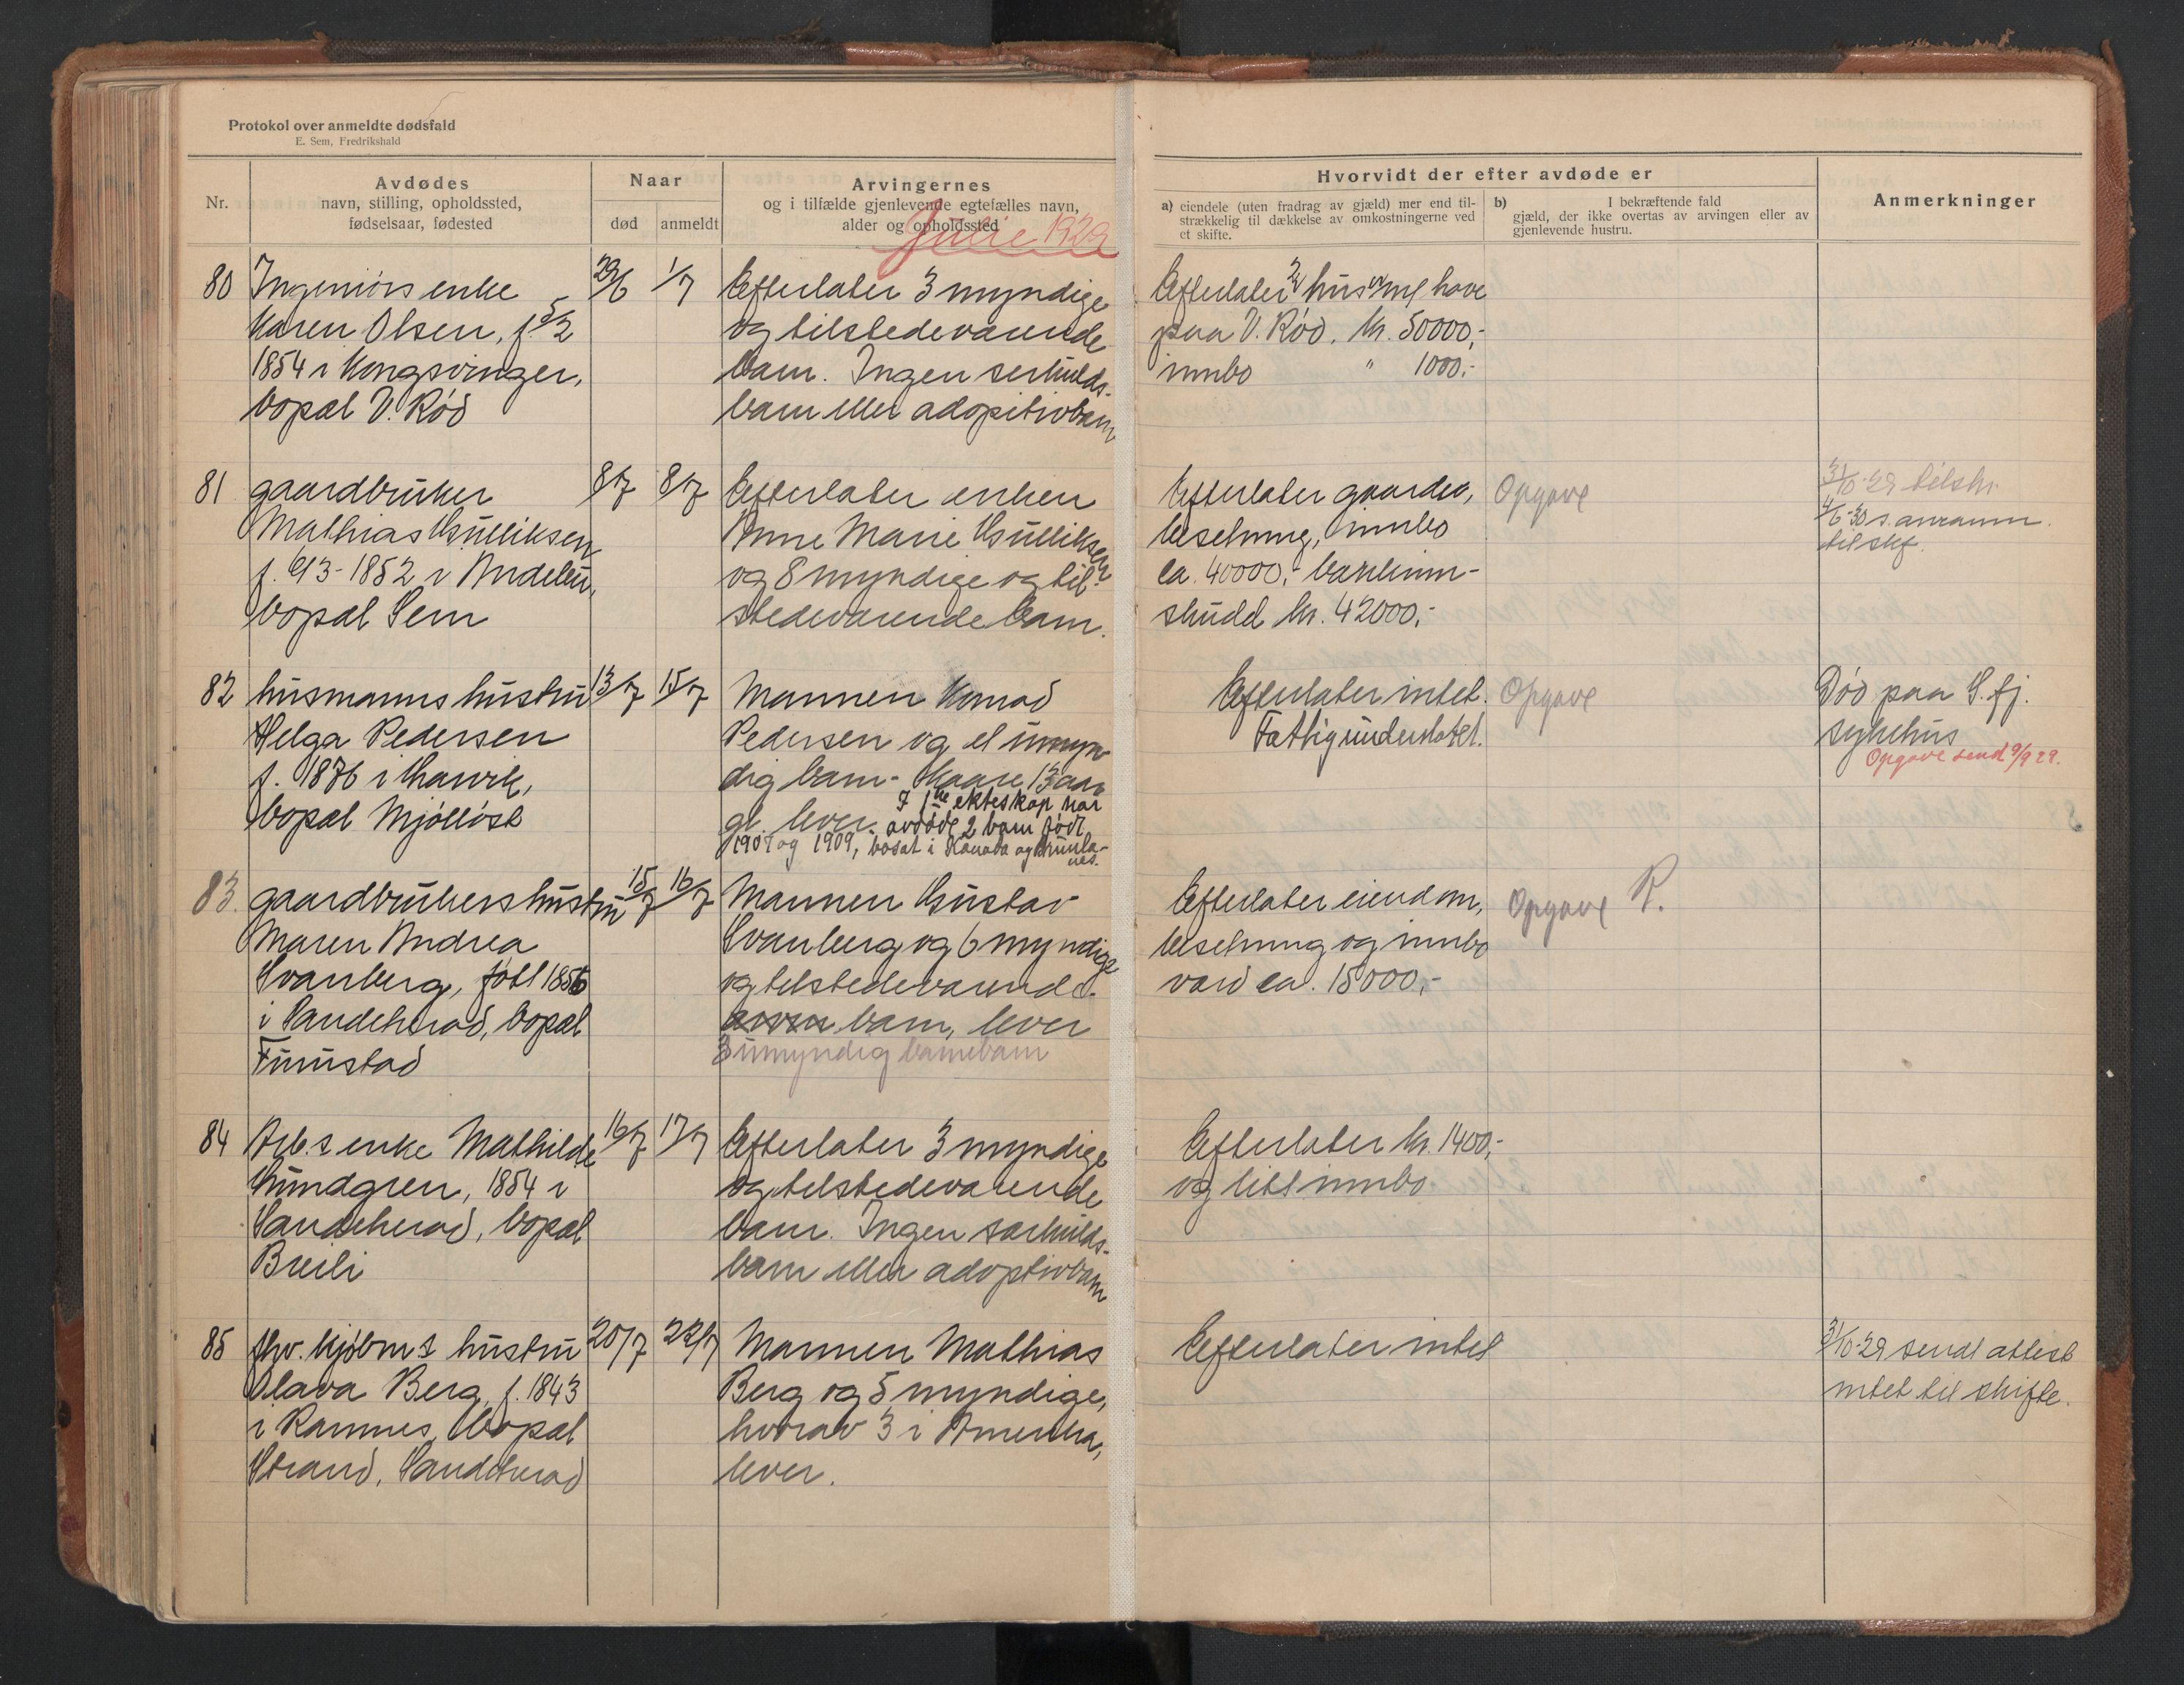 Protokol over anmeldte dødsfald
E. Sem, Fredrikshald
Nr.
Avdødes
navn, stilling, opholdssted,
fødselsaar, fødested
Naar
død
anmeldt
Arvingernes
og i tilfælde gjenlevende egtefælles navn,
alder og opholdssted
Julie 1929
Hvorvidt der efter avdøde er
a) eiendele (uten fradrag av gjæld) mer end til-
strækkelig til dækkelse av omkostningerne ved
et skifte.
b) I bekræftende fald
gjæld, der ikke overtas av arvingen eller av
gjenlevende hustru.
Anmerkninger
80
Ingeniørs enke
Karen Olsen, f. 5/2
1854 i Kongsvinger,
bopæl V. Rød
29/6
1/7
Efterlater 3 myndige
og tilstedeværende
barn. Ingen særkulds-
barn eller adopitivbarn
Efterlater 2 hus m/ have
paa V. Rød, kr. 50000,-
innbo " 1000.-
81
gaardbruker
Mathias Gulliksen
f. 6/3-1852 i Andebu,
bopæl Sem
8/7
8/7
Efterlater enken
Anne Marie Gulliksen
og 8 myndige og til-
stedeværende barn.
Efterlater gaarder,
besetning, innbo
ca. 40000,- bankinn-
skudd kr. 42000,-
Opgave
31/10-29 tilskr.
4/6-30 s.
til skf.
82
husmanns hustru
Helga Pedersen
f. 1876 i Larvik,
bopæl Mjølløst
13/7
15/7
Mannen Konrad
Pedersen og et umyn-
dig barn - Kaare 13 aar
gl. lever. I 1ne ekteskap har
avdøde 2 barn født
1907 og 1909, bosat i Kanada og Brunla-
nes.
Efterlater intet.
Fattigunderstøttet.
Opgave
Død paa S. fj.
sykehus
Opgave send 9/9 29.
83.
gaardbrukers hustru
Maren Andrea
Svanberg, født 1856
i Sandeherad, bopæl
Furustad
15/7
16/7
Mannen Gustav
Svanberg og 6 myndige
og tilstedeværende
barn, lever
3 umyndig barnebarn
Efterlater eiendom,
besetning og innbo
værd ca. 15000,-
Opgave R.
84
Arb.s enke Mathilde
Lundgren, 1854 i
Sandeherad, bopæl
Breili
16/7
17/7
Efterlater 3 myndige
og tilstedeværende
barn. Ingen særkulds-
barn eller adoptivbarn
Efterlater kr. 1400,-
og litt innbo.
85
fhv. kjøbm.s hustru
Olava Berg, f. 1843
i Ramnes, bopæl
Strand, Sandeherad
20/7
22/7
Mannen Mathias
Berg og 5 myndige,
hvorav 3 i Amerika,
lever.
Efterlater intet
31/10-29 sendt attest
intet til skifte.